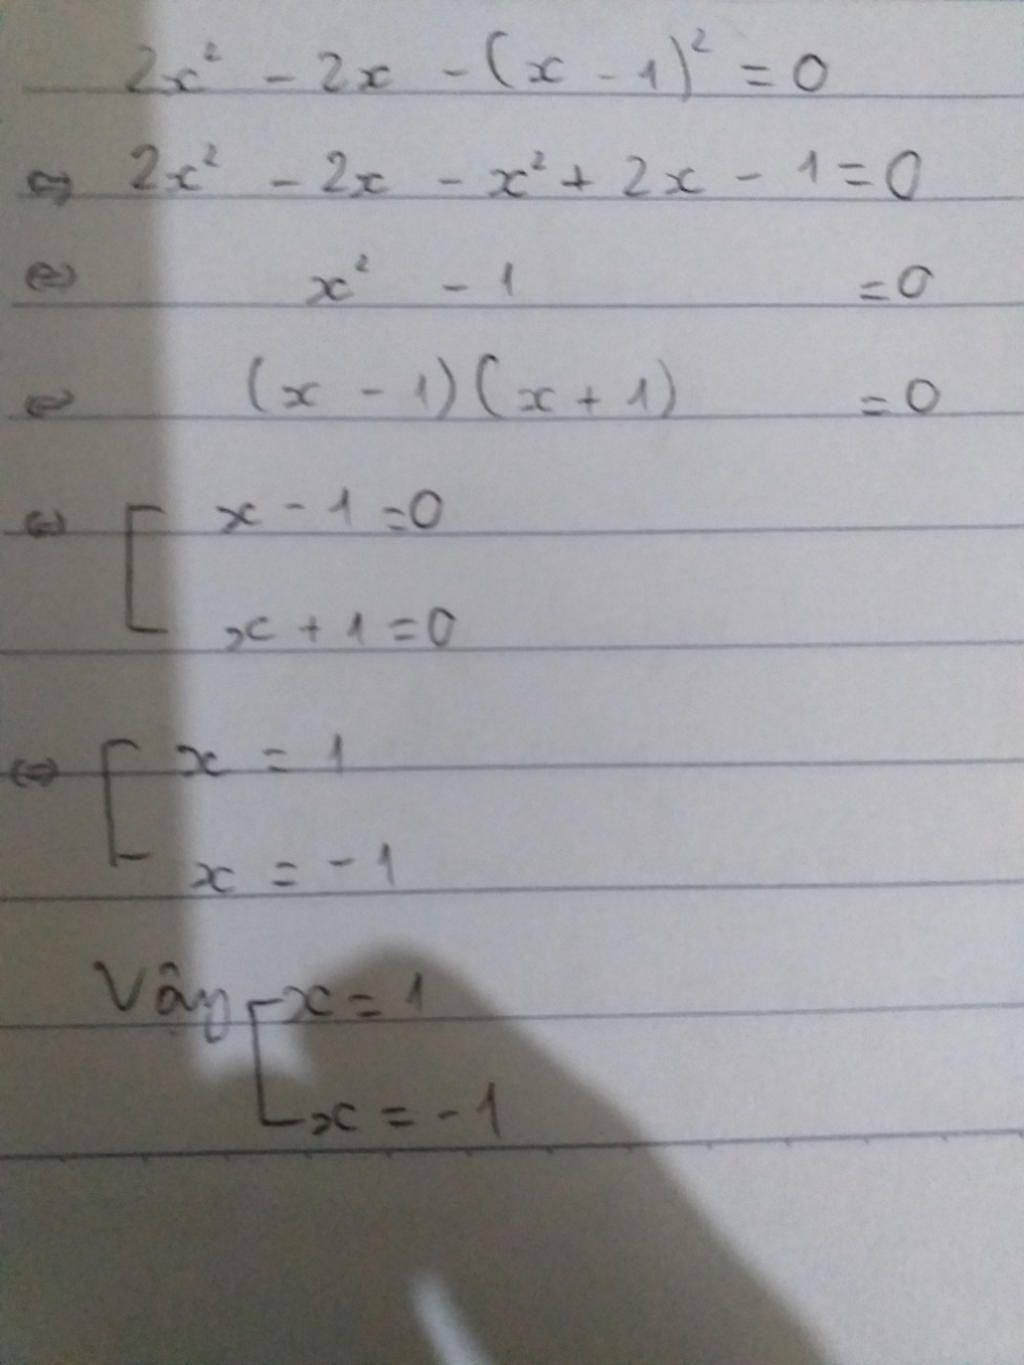 2x² - 2x - (x - 1)² = 0
⇔ 2x² - 2x - x² + 2x - 1 = 0
⇔ x² - 1 = 0
⇔ (x - 1)(x + 1) = 0
⇔ [ x - 1 = 0
x + 1 = 0
⇔ [ x = 1
x = -1
Vậy [ x = 1
x = -1